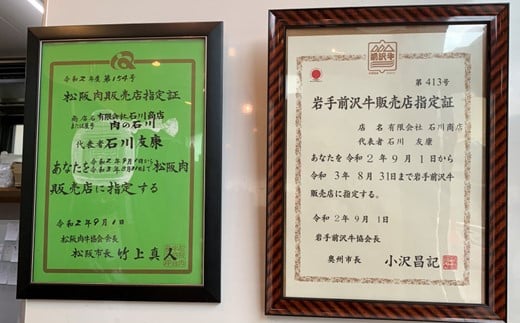 令和2年度第154号
松阪肉販売店指定証
商店名
または屋号
有限会社石川商店
肉の石川
代表者石川友康
あなたを令和2年9月1日から
令和3年8月31日まで松阪肉
販売店に指定する
令和2年9月1日
松阪肉牛協会会長
松阪市長 竹上真人
前沢牛
第413号
岩手前沢牛販売店指定証
店名 有限会社 石川商店
代表者 石川 友康
あなたを令和2年9月1日から
令和3年8月31日まで岩手前沢牛
販売店に指定する。
令和2年9月1日
岩手前沢牛協会長
奥州市長 小沢昌記